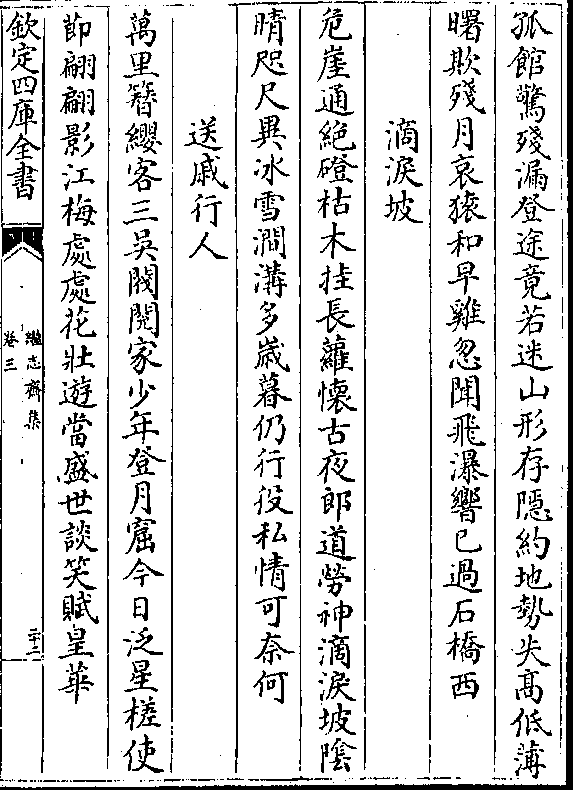 孤館驚殘漏登途竟若迷山形存隱約地勢失髙低薄
曙欺殘月哀猿和早雞忽聞飛瀑響已過石橋西
滴淚坡
危崖通絶磴枯木挂長蘿懷古夜郎道勞神滴淚坡陰
晴咫尺異冰雪澗溝多嵗暮仍行役私情可奈何
送戚行人
萬里簪纓客三吴閥閲家少年登月窟今日泛星槎使
節翩翩影江梅處處花壯遊當盛世談笑賦皇華
欽定四庫全書
繼志齋集
卷三
二十二